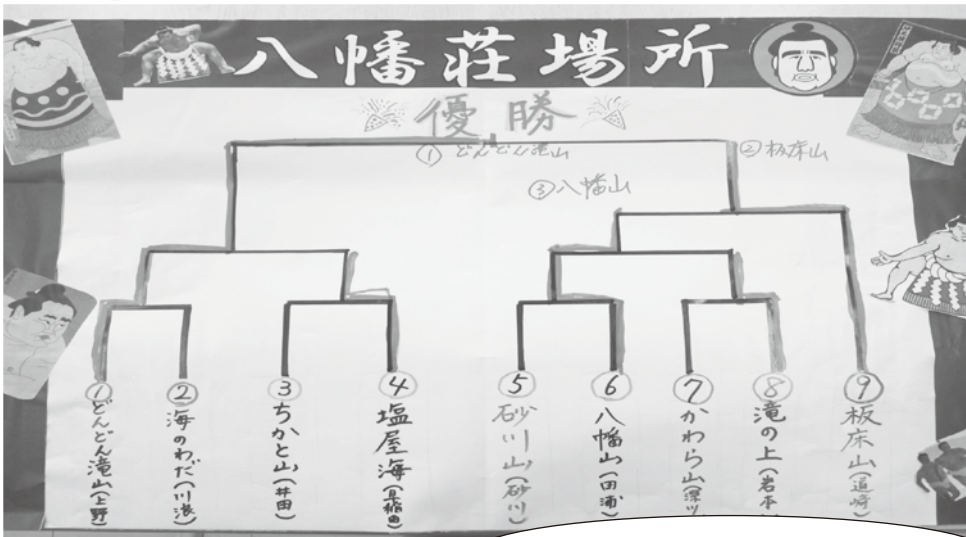 八幡荘場所
優勝
① どんどん滝山
② 板床山
③ 八幡山
① どんどん滝山(上野)
② 海のわだ(川浪)
③ ちかと山(井田)
④ 塩屋海(早稲田)
⑤ 砂川山(砂川)
⑥ 八幡山(田浦)
⑦ かわら山(深川
⑧ 滝の上(岩本
⑨ 板床山